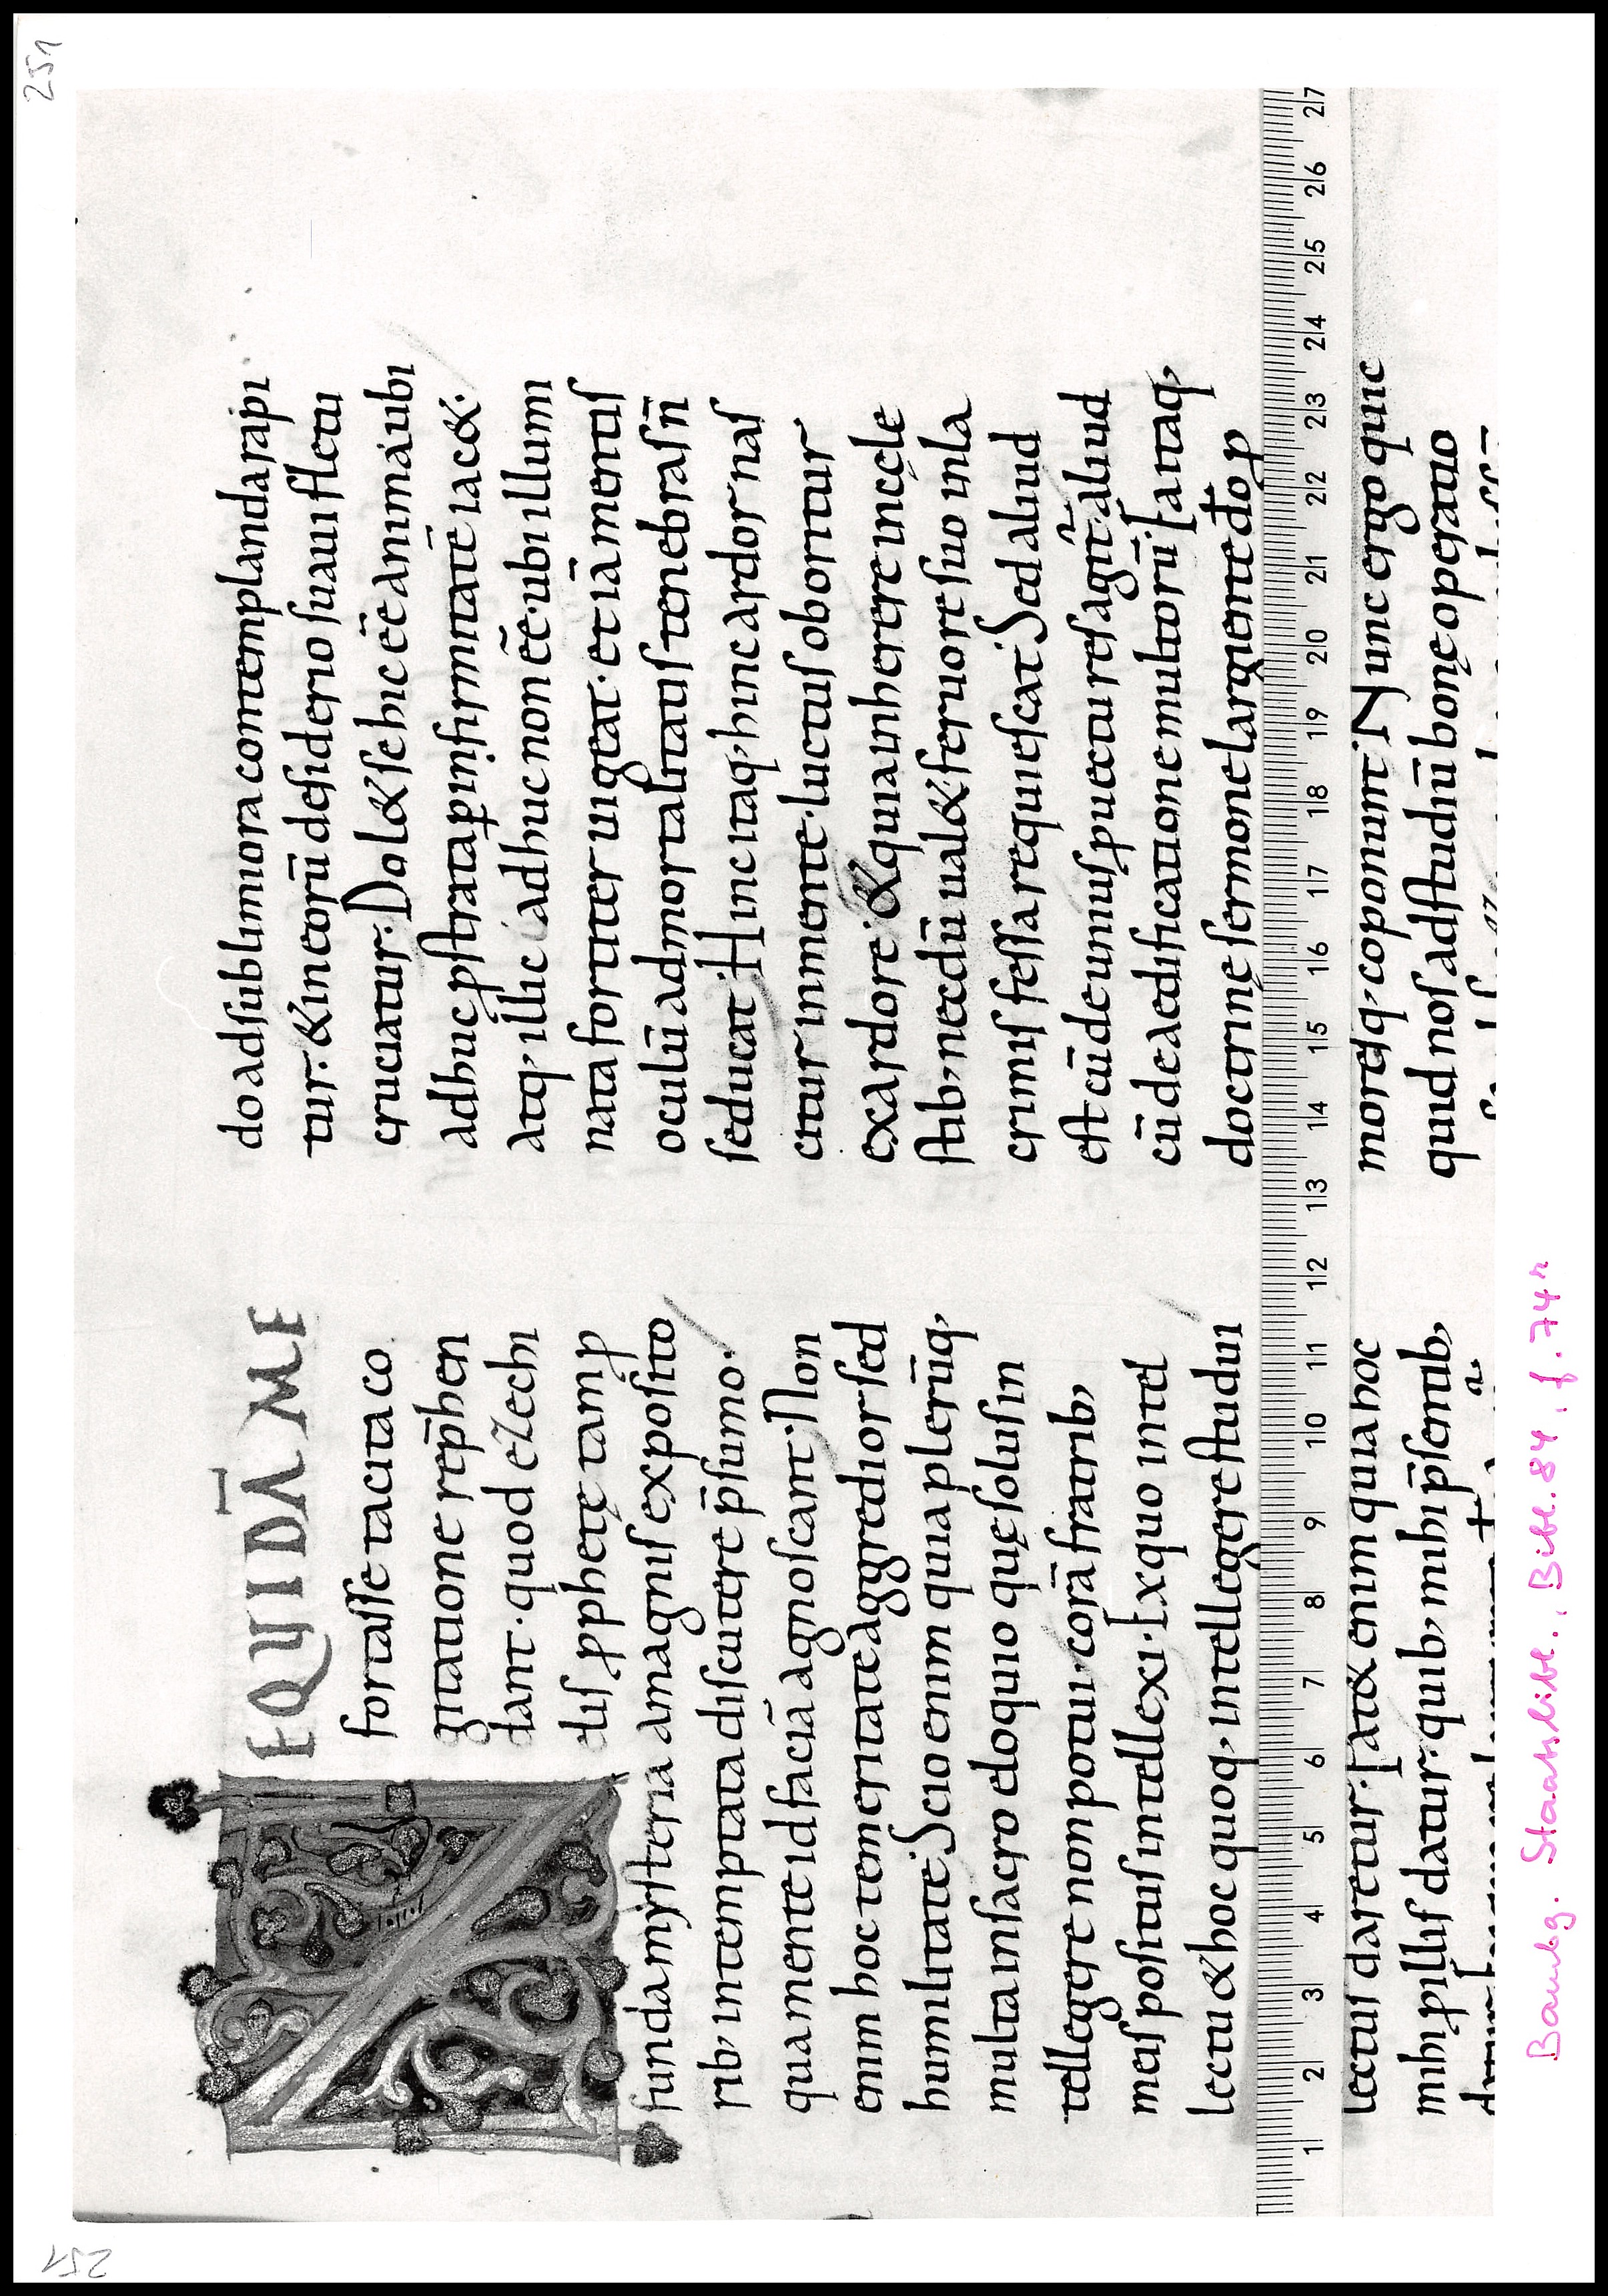 251
EQUIDĀ ME
fortasse tacita co
gitatione rep̄hen
dant· quod eZechi
elis ꝓphetę tam ꝓ
funda mysteria a magnis exposito
rib; intemptata discutere p̄sumo·
qua mente id faciā agnoscant· Non
enim hoc temeritate aggredior sed
humilitate· Scio enim quia plerūq;
multa in sacro eloquio quę solus in
tellegere non potui· corā fratrib;
meis positus intellexi· Ex quo intel
lectu & hoc quoq; intellegere studui
lectus daretur· Pat& enim quia hoc
mihi ꝑ illis datur· quib; mihi p̄sentib;
do ad sublimiora contemplanda rapi
tur· & in eorū desiderio suaui fletu
cruciatur· Dol& se hic ēē anima· ubi
adhuc ꝓstrata ꝑ infirmitatē iac&·
atq; illic adhuc non ēē· ubi illumi
nata fortiter uigeat· et iā mentis
oculū ad mortalitatis tenebras n̄
reducat· Hinc itaq; hinc ardor nas
citur in mente· luctus oboritur
ex ardore· & quia inherere incęle
stib; necdū ual& feruore suo in la
crimis fessa requiescat· Sed aliud
est cū de unius ꝓuectu res agit̃· aliud
cū de aedificatione multorū· Ea itaq;
doctrinę sermone largiente do ꝓ
moresq; coponunt· Nunc ergo quic
quid nos ad studiū bonę operatio
1 2 3 4 5 6 7 8 9 10 11 12 13 14 15 16 17 18 19 20 21 22 23 24 25 26 27
Bambg. Staatsbibl., Bibl. 84, f. 74r
152